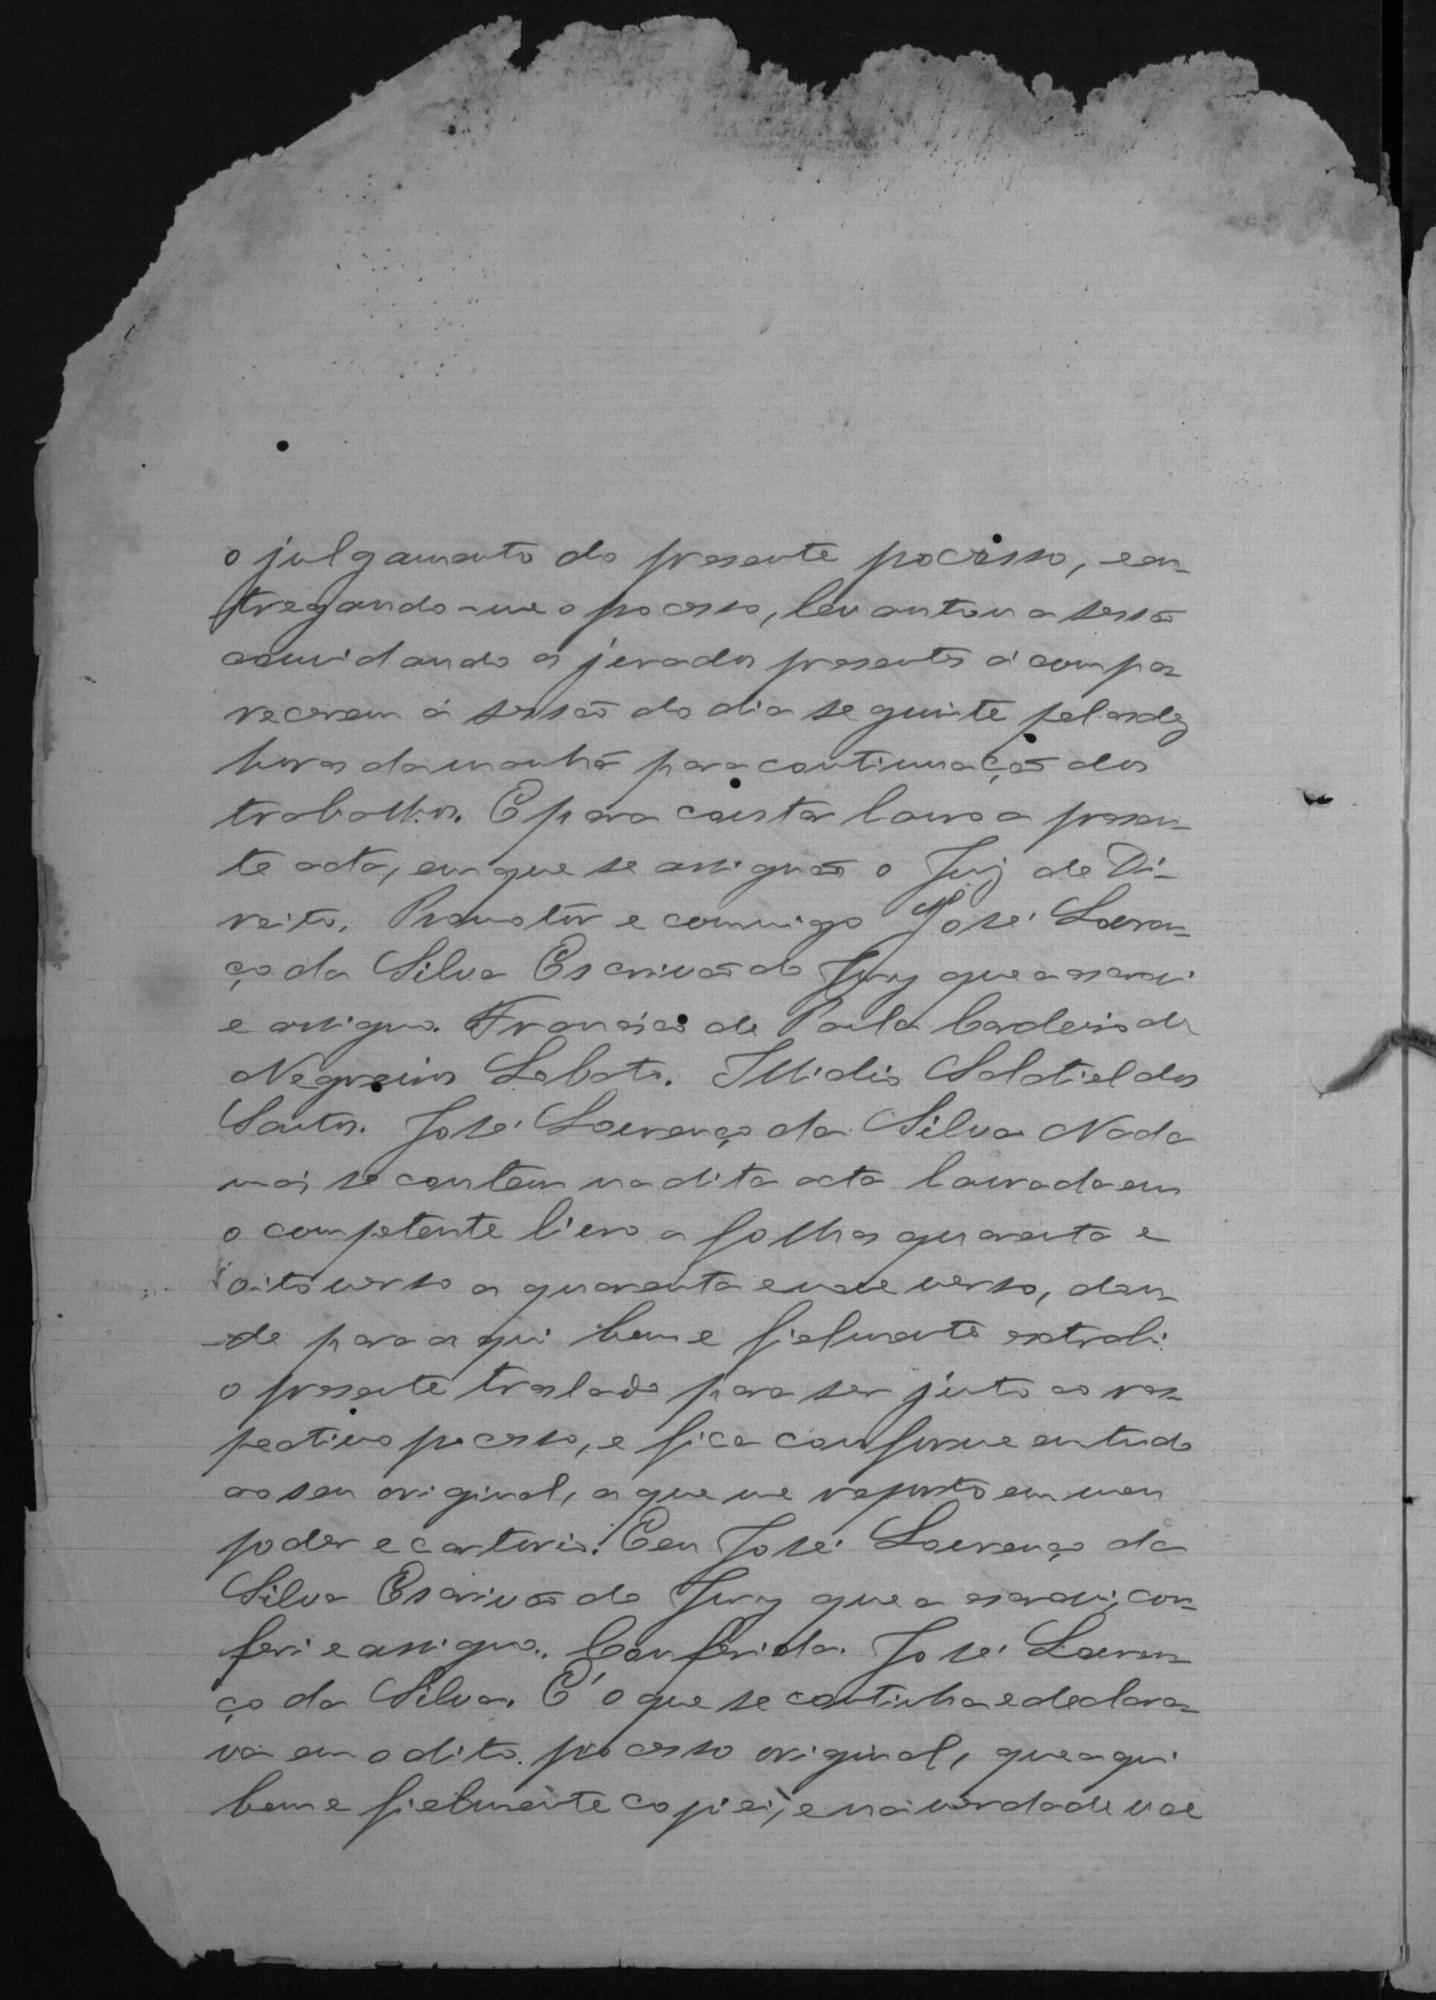 o julgamento do presente pocésso, en-
tregando-me o pocesso, levantou a sessão
convidando os jurados presentes á compa-
recerem á sessão do dia seguinte pelas dez
horas da manhã para continuação dos
trabalhos. E para constar lavro a presen-
te acta, em que se assignão o Juiz de Di-
reito, Promotor e commigo José Louren-
ço da Silva Escrivão do Jury que a escrevi
e assigno. Francisco de Paula Cordeiro de
Negreiros Lobato. Illidio Salatiel dos
Santos. José Lourenço da Silva Nada
mais se contem na dita acta lavrada em
o competente livro a folhas quarenta e
oito verso a quarenta e nove verso, don-
de para aqui bem e fielmente extrahi
o presente traslado para ser junto ao res-
pectivo pocesso, e fica conforme em tudo
ao seu original, a que me reporto em meu
poder e cartorio. Eu José Lourenço da
Silva Escrivão do Jury que a escrevi, con-
feri e assigno. Conferida. José Louren-
ço da Silva. E' o que se continha e declara-
va em o dito pocesso original, que aqui
bem e fielmente copiei, e na verdade vae